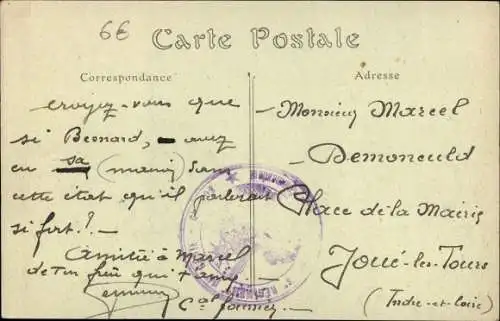 6€
Carte Postale
Correspondance
croyez-vous que
si Bernard, avez
eu sa (manie) dans
cette état qu'il parlerait
si fort?.-
Amitié à Marcel
de ton frère qui t'aime
Adresse
Monsieur Marcel
Demoneuld
Place de la Mairie
Joué-les-Tours
(Indre-et-Loire)